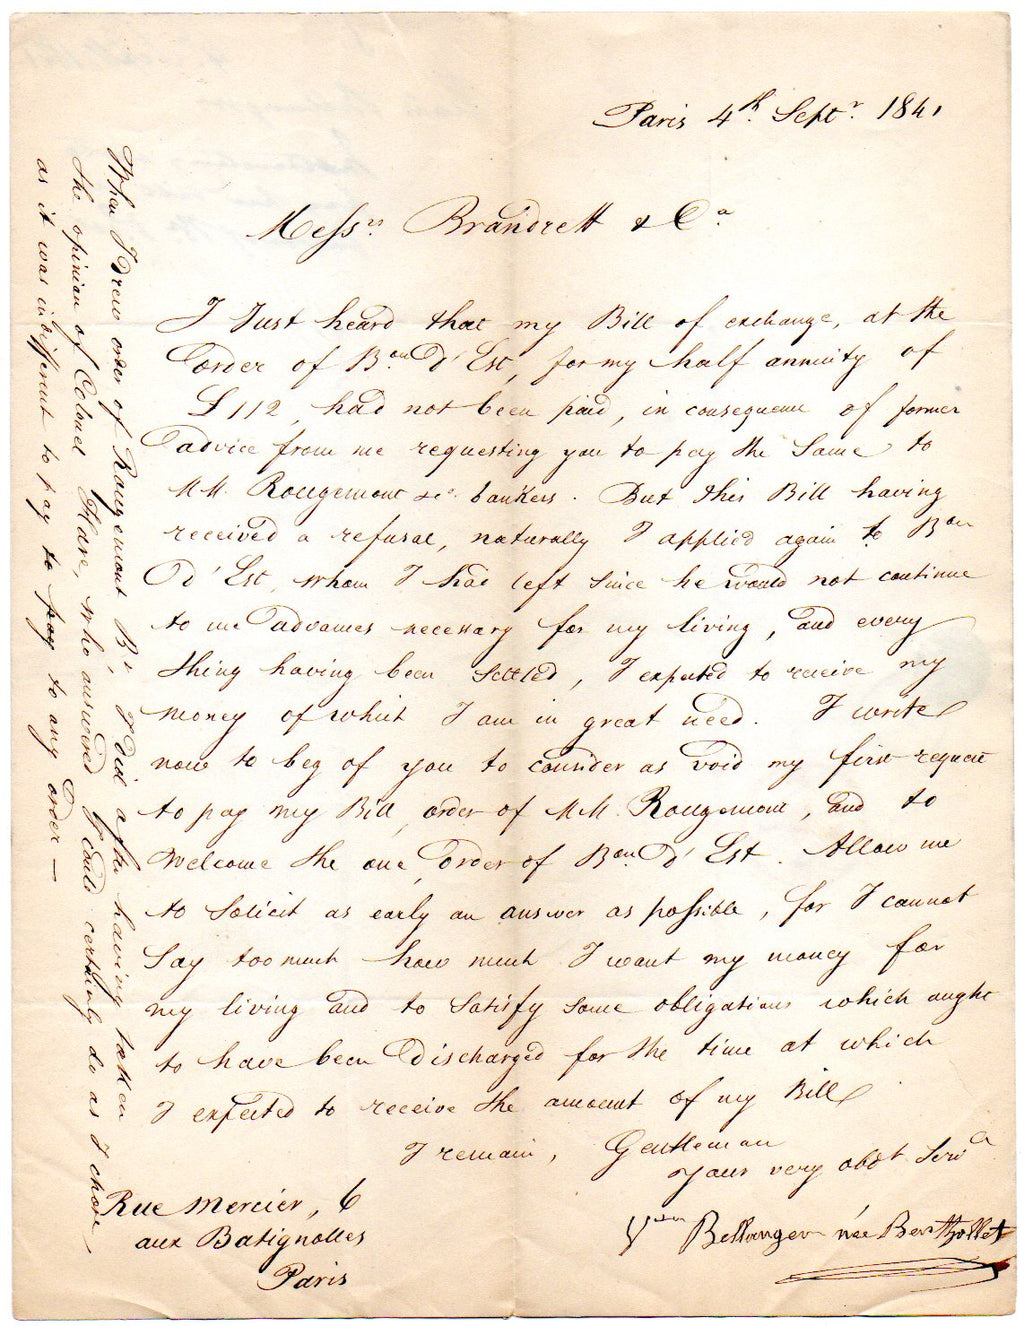 Paris 4th Septr 1841
Messrs Brandrett & Co
I Just heard that my Bill of exchange, at the
order of Bon d'Est, for my half annuity of
£112, had not been paid, in consequence of former
advice from me requesting you to pay the Same to
MM. Rougemont & Co bankers. But this Bill having
received a refusal, naturally I applied again to Bon
d'Est, whom I had left since he would not continue
to me advances necessary for my living, and every
thing having been settled, I expected to receive my
money of which I am in great need. I write
now to beg of you to consider as void my first request
to pay my Bill, order of MM. Rougemont, and to
welcome the one, order of Bon d'Est. Allow me
to solicit as early an answer as possible, for I cannot
Say too much how much I want my money for
my living and to satisfy some obligations which ought
to have been discharged for the time at which
I expected to receive the amount of my Bill
I remain, Gentleman
your very obdt Servt
Bellanger née Berthollet
Rue Mercier, 6
aux Batignolles
Paris
When I drew order of Rougemont Br, I did after having taken
the opinion of Colonel Hare, who answered I could certainly do as I chose,
as it was indifferent to pay to pay to any order —